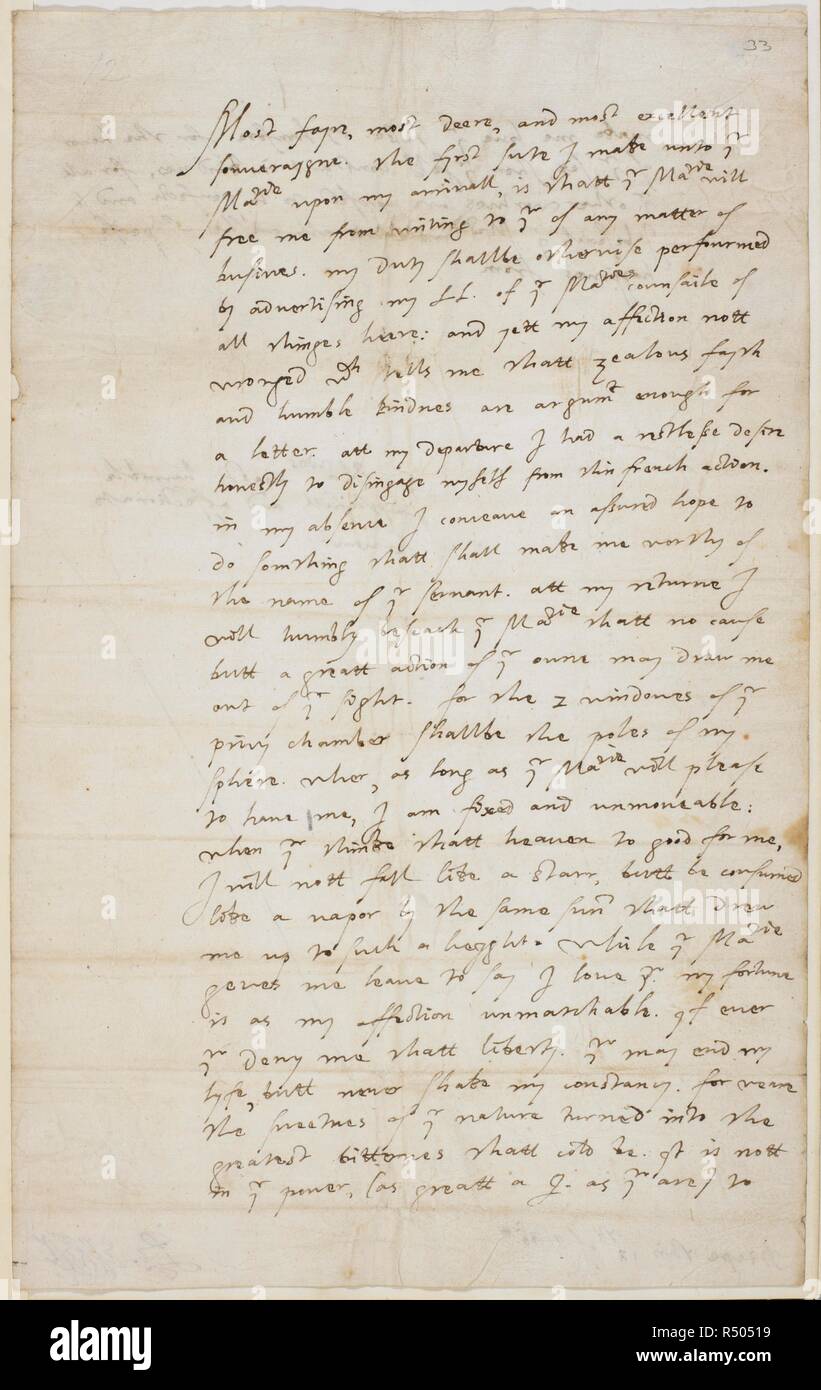 33
Most fayre, most deere, and most excellent
souveraygne. the fyrst sute I make unto yr
Matie upon my arrivall, is thatt yr Matie will
free me from writing to yr of any matter of
busines. my duty shallbe otherwise perfourmed
by advertising my LL. of yr Maties counsaile of
all thinges heere: and yett my affection nott
wronged wch tells me thatt zealous fayth
and humble kindnes are argumt enough for
a letter. att my departure I had a restlesse desire
honestly to disingage myself from this french action.
in my absence I conceave an assured hope to
do something thatt shall make me worthy of
the name of yr servant. att my returne I
will humbly beseach yr Matie thatt no cause
butt a greatt action of yr owne may draw me
out of yr sight. for the 2 windowes of yr
privy chamber shallbe the poles of my
sphere. wher, as long as yr Matie will please
to have me, I am fixed and unmoveable:
when yr thinke thatt heaven to good for me,
I will nott fall like a starr, butt be consumed
like a vapor by the same sun thatt drew
me up to such a heyght. while yr Matie
geves me leave to say I love yr. my fortune
is as my affection unmatchable. yf ever
yr deny me thatt liberty. yr may end my
lyfe, butt never shake my constancy. for weare
the sweetnes of yr nature turned into the
greatest bitternes thatt cold be. yt is nott
in yr power, (as greatt a Q. as yr are) to
alamy
Image ID: R50519
www.alamy.com